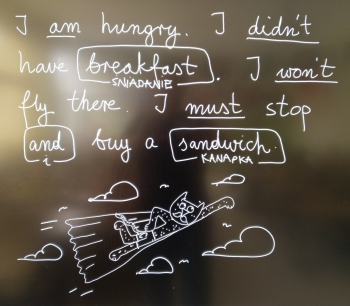 I am hungry. I didn't
have breakfast. I won't
ŚNIADANIE
fly there. I must stop
and buy a sandwich.
i KANAPKA